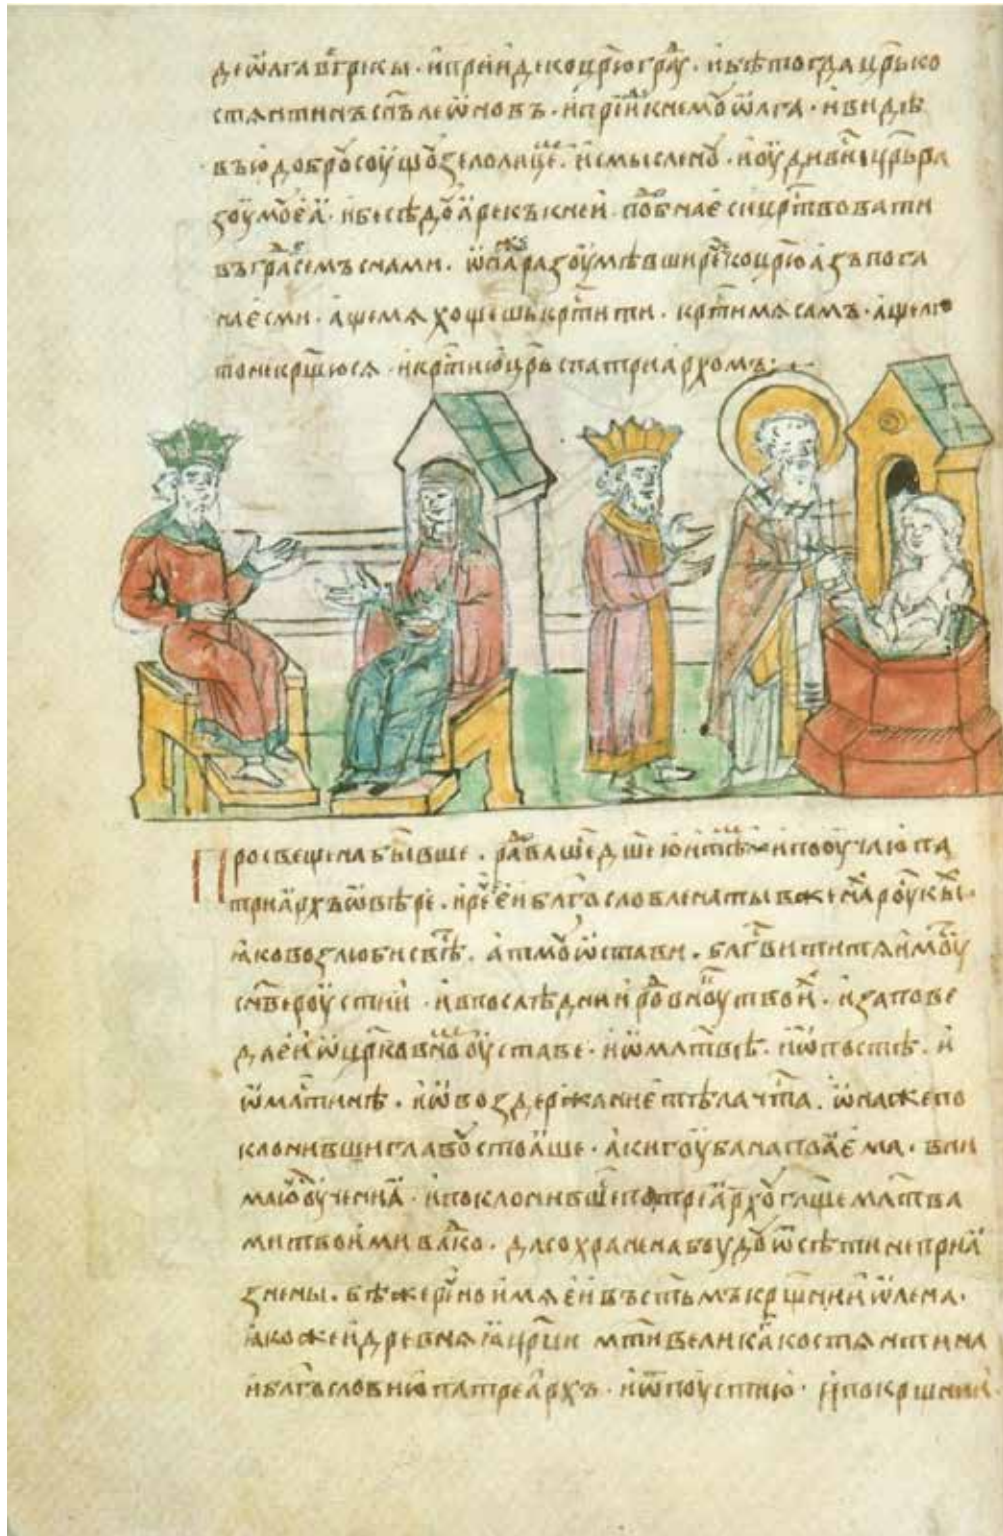 де ѡлга въ греки · и прииде ко црюграду · и бѣ тогда црь ко
стянтинъ снъ леѡновъ · и прииде к нему ѡлга · и видѣ
въ ю добру соущу зело лицем и смыслену · и оудивися црь ра
зоуму еа · и беседоуа рекъ к ней подобна еси цртвовати
въ граде семъ с нами · ѡна же разоумѣвши рече ко црю азъ пога
на есми · аще мя хощешь кртити · крти мя самъ · аще ли
то не крщюся · и крти ю црь с патриархомъ
Просвещена бывше · радовашеся дшею и тѣломъ и пооучи ю па
триархъ ѡ вѣре · и рече еи блгословлена ты в женах роускых
яко возлюби свѣт · а тму ѡстави · блгвити тя имоуть
снве роустии · и в последнии род вноук твоих · и запове
дя еи ѡ црковном оуставе · и ѡ млтвѣ · и ѡ постѣ · и
ѡ млтнѣ · и ѡ воздержание тѣла чта · ѡна же по
клонивши главоу стоаше · аки гоуба напоаема · вни
маю оучениа · и поклонившеся патреарху глще млтва
ми твоими влко · да сохранена боуду ѿ сѣти неприа
знены · бѣ же речено имя еи въ стмъ крщнии ѡлена ·
якоже и древняа црци мти великаго костянтина
и блгослови ю патреархъ · и ѿпоусти ю · и по крщнии